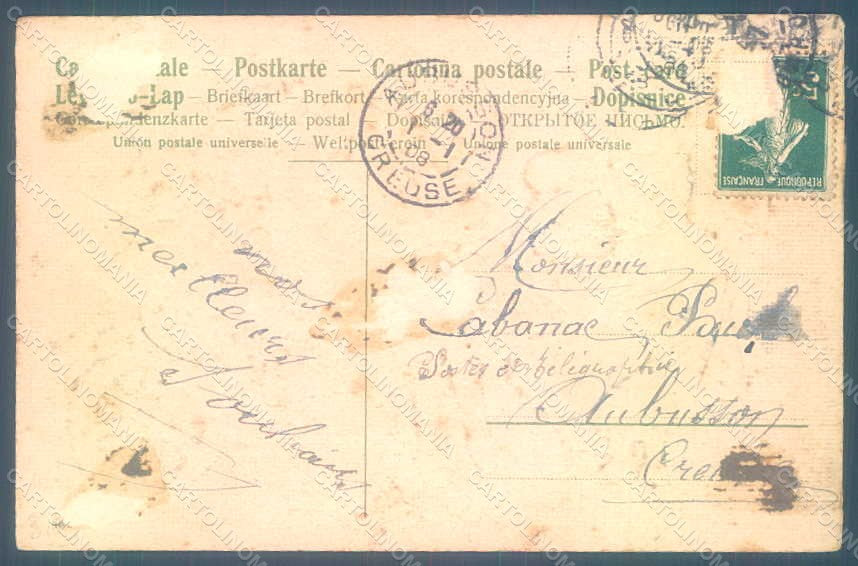 Ca ale — Postkarte — Cartolina postale — Post-card
Le o-Lap — Briefkaart — Brefkort — Karta korespondencyjna — Dopisnice
Correspondenzkarte — Tarjeta postal — Dopisnai — ОТКРЫТОЕ ПИСЬМО.
Union postale universelle — Weltpostverein — Unione postale universale
AUBUSSON
8 20
1 - 1
08
CREUSE
5c
REPUBLIQUE FRANÇAISE
mes
meilleurs
Souhaits
Monsieur
Cabanac Paul
Postes et télégraphes
Aubusson
Creuse
CARTOLINOMANIA